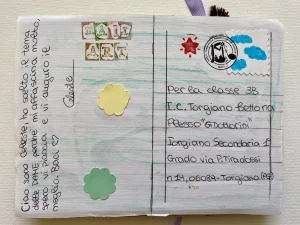 Ciao sono Celeste, ho scelto il tema
delle DAME perché m'affascina molto,
spero vi piaccia e vi auguro il
meglio. Baci
Celeste
MAIL
ART
Per la classe 3B
I.C. Torgiano Bettona
Plesso "G. Dottori"
Torgiano Secondaria 1
Grado via P. Tiradossi
n 14, 06089-Torgiano (PG)